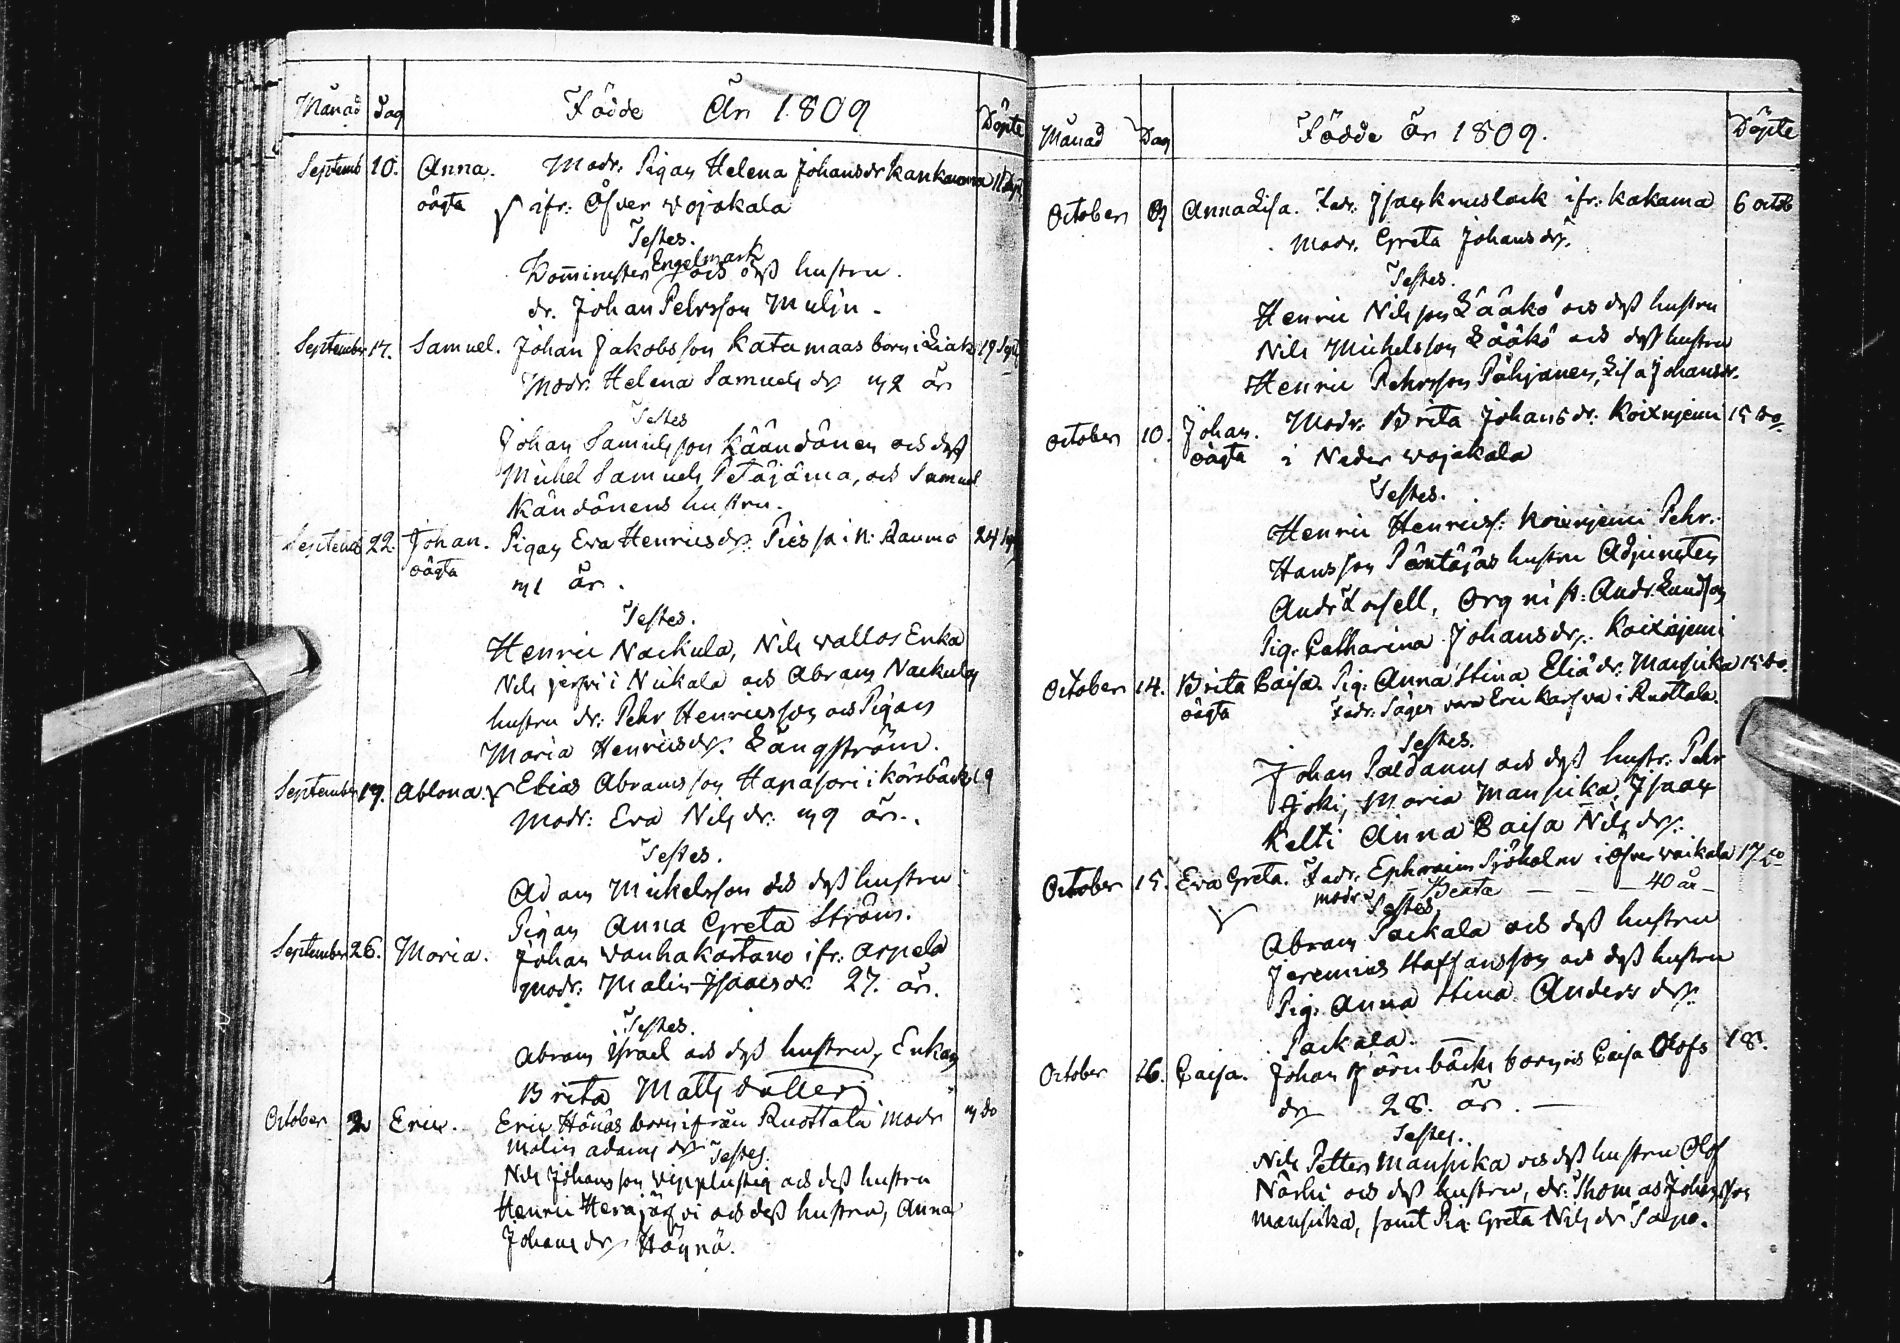 Månad Dag Födde År 1809 Döpte
Septemb 10. Anna. Modr. Pigan Helena Johansdr Kankaanra 11 Sept
oägta ifr: Öfver Wojakala
Testes.
Comminister Engelmark och dess hustru.
dr. Johan Pehrsson Mulin.
September 17. Samuel. Johan Jakobsson Katamaas born i Liak 19 Sept
Modr. Helena Samuels dr 42 år
Testes
Johan Samuelsson Käändönen och dess
Michel Samuels Petäjäma, och Samuel
Kändönens hustru.
Septemb 22. Johan. Pigan Eva Henricsdr. i N: Rauma 24
oägta 41 år.
Testes.
Henric Naekula, Nils Wallos Enka
Nils i Nickala och Abram
hustru dr: Pehr Henricsson och Pigan
Maria Henricsdr. Långström.
September 19. Ablona. Elias Abramsson Hanasori i Körbäck 19
Modr: Eva Nils dr: 49 år.
Testes.
Adam Mickelsson och dess hustru
Pigan Anna Greta Ström.
September 26. Maria. Johan Wanhakartano ifr. Arpela
modr. Malin Isaacsdr. 27. år.
Testes.
Abram Israel och dess hustru, Enkan
Brita Matts dotter
October 2 Eric. Eric Hönäs born ifrån Ruottala Modr 4 do
Malin Adams dr Testes.
Nils Johansson Wipplustig och dess hustru
Henric Herajärfvi och dess hustru, Anna
Johans dr Höynä.
Månad Dag Födde År 1809. Döpte
October Anna Lisa. Fadr. Isac Kruslock ifr: Kakama 6 octob
Modr. Greta Johans dr.
Testes.
Henric Nilsson Lääkö och dess hustru
Nils Michelsson Lääkö och dess hustru
Henric Pehrsson Pohjanen, Lisa Johansdr.
October 10. Johan. Modr. Brita Johans dr. Koivujemi 15 do
oägta i Neder Wojakala
Testes.
Henric Henricss: Koivujemi Pehr.
Hansson Päntäjäs hustru Adjuncten
Andr Forsell, Orgnist: Andr. Lundson
Pig. Catharina Johansdr. Koivujemi
October 14. Brita Caisa. Pig: Anna Stina Eliædr: Mansicka 15 do
oägta Fadr. Säges vara Eric Karfva i Ruottala.
Testes.
Johan Paldanus och dess hustr. Pehr
Joki, Maria Mansicka, Isaac
Kelti Anna Caisa Nils dr.
October 15. Eva Greta. Fadr. Ephraim Sjöholm i Öfver Waikala 17 do
modr. Beata — — — 40 år
Testes
Abram Packala och dess hustru
Jeremias Staffansson och dess hustru
Pig. Anna Stina Anders dr.
Packala.
October 16. Caisa. Johan Björnbäck born Caisa Olofs 18.
dr 28. år. —
Testes.
Nils Petter Mansicka och dess hustru Olof
Närhi och dess hustru, dr: Thomas Johansson
Mansicka, samt Pig. Greta Nils dr Sapo.